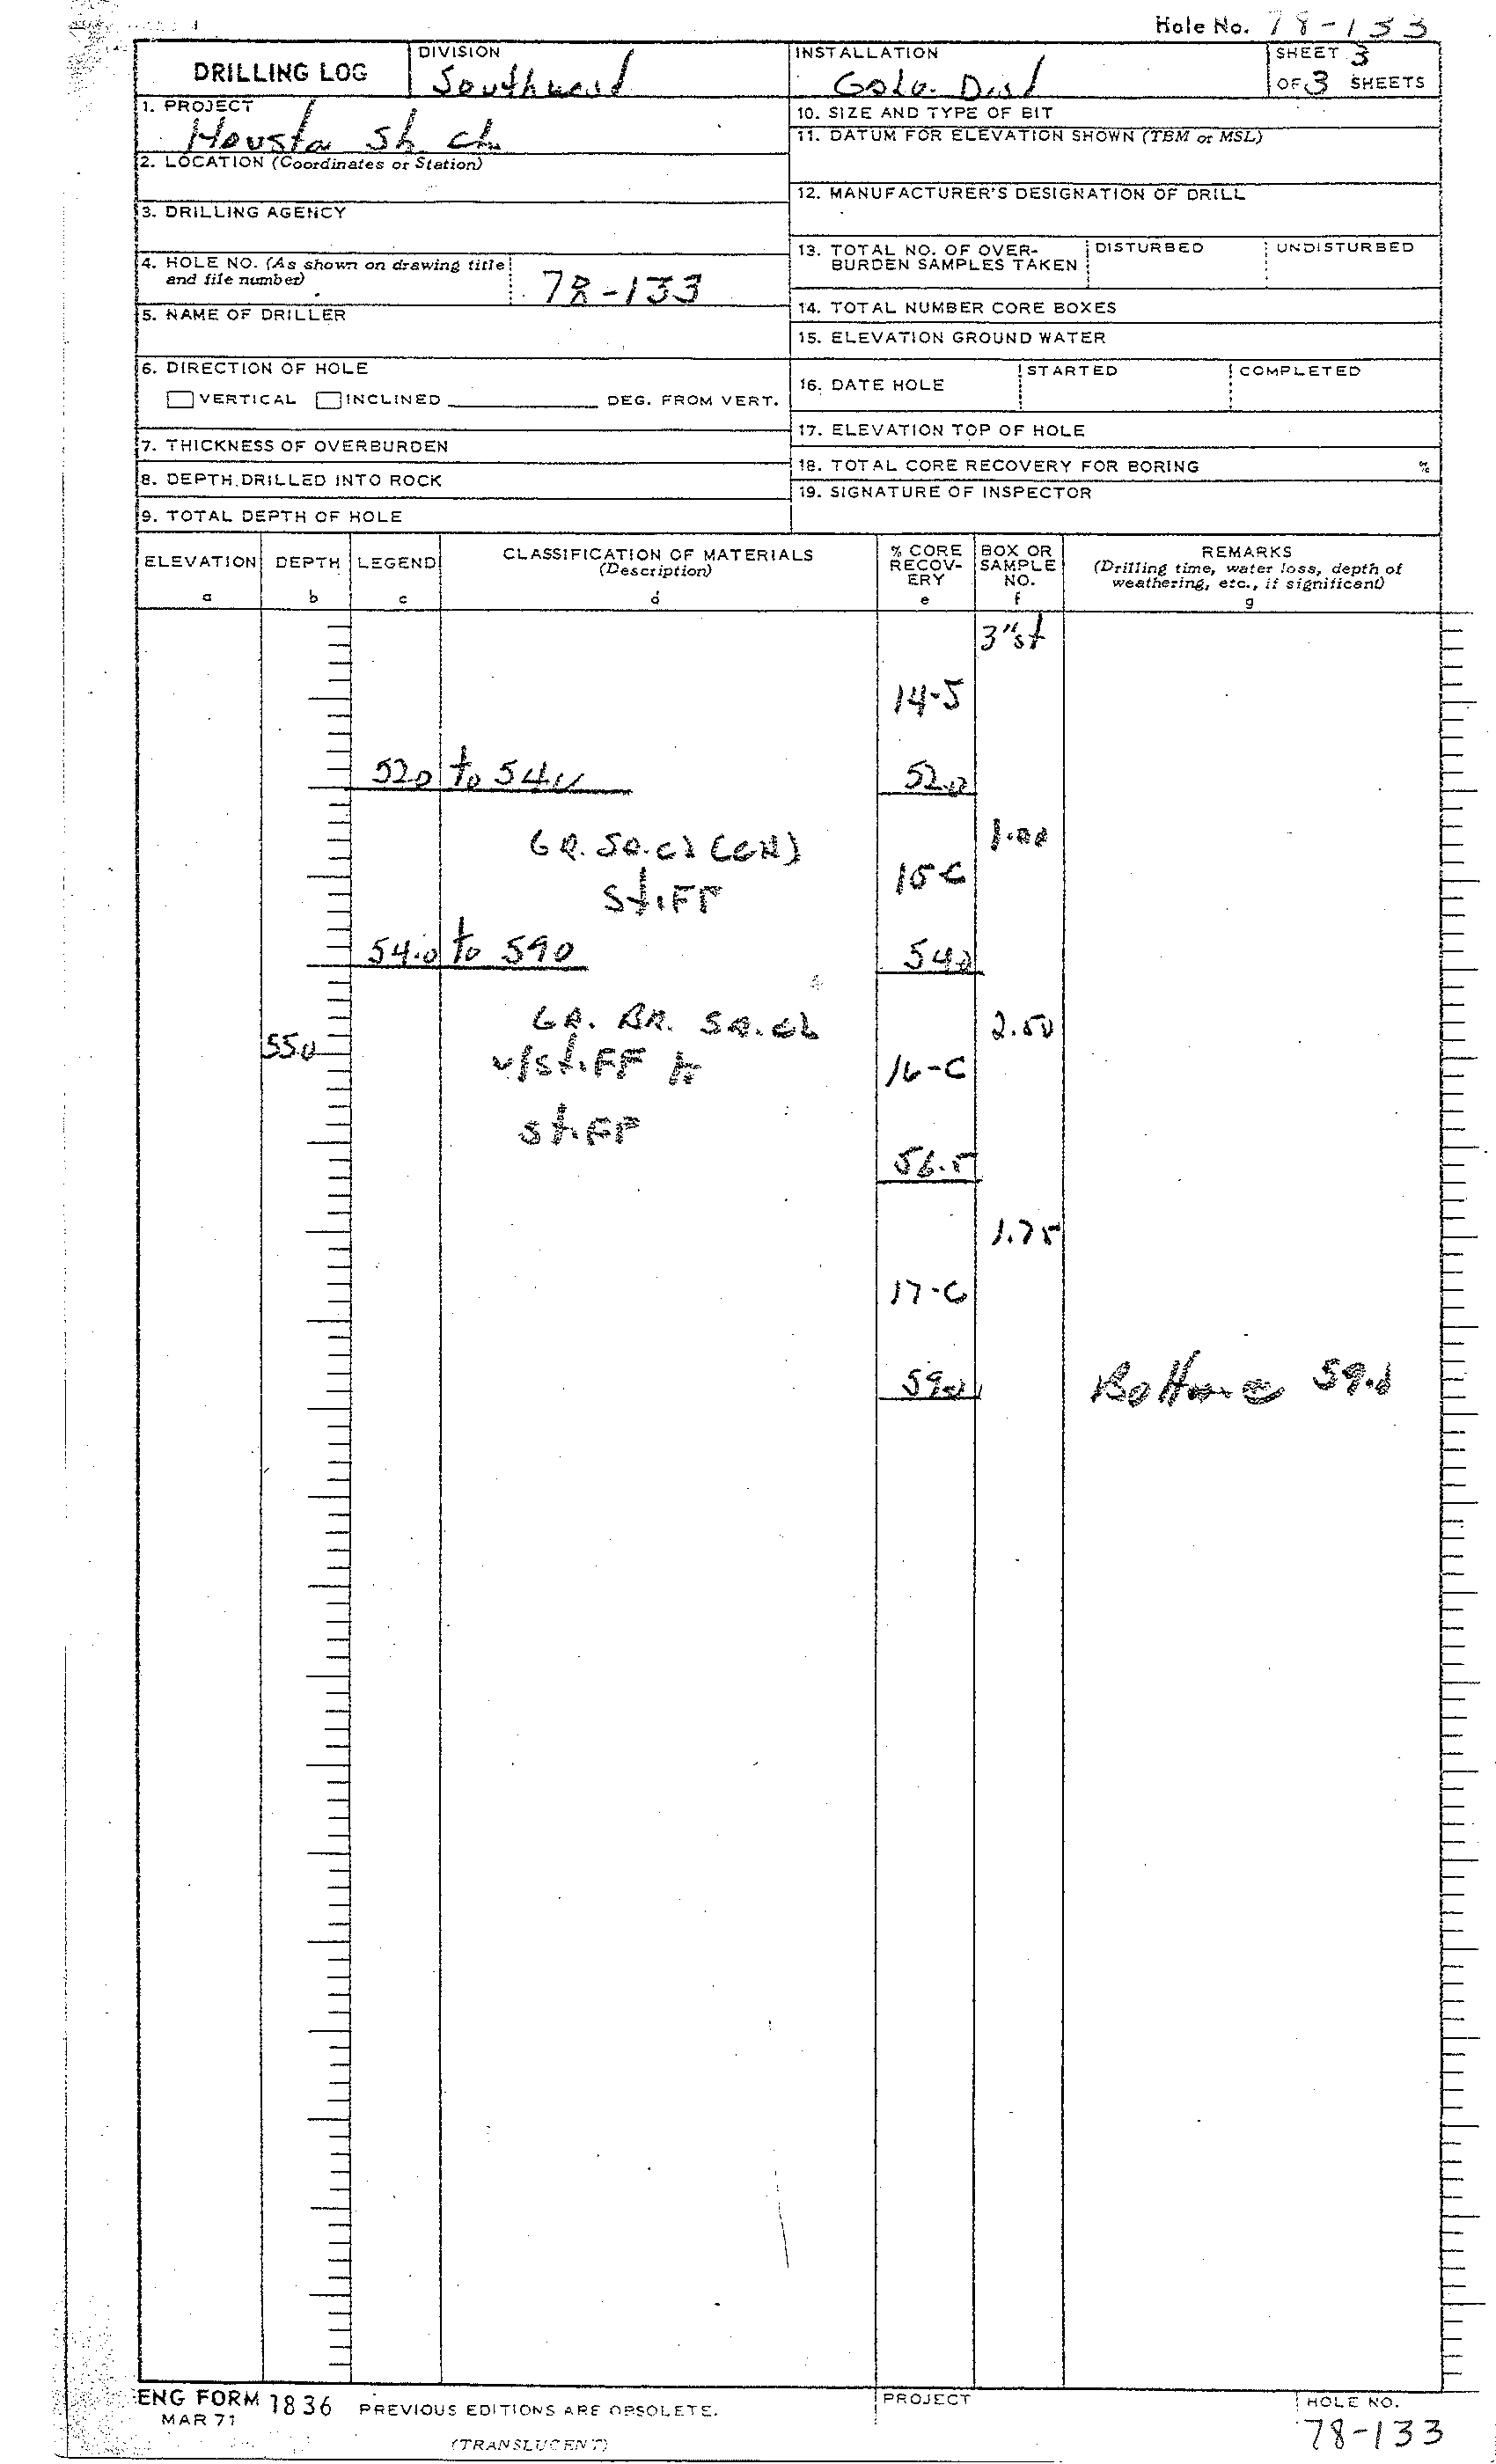 Hole No. 78-133
DRILLING LOG
DIVISION
Southwest
INSTALLATION
Galv. Dist
SHEET 3
OF 3 SHEETS
1. PROJECT
Housta Sh Ch
2. LOCATION (Coordinates or Station)
3. DRILLING AGENCY
4. HOLE NO. (As shown on drawing title
and file number)
78-133
5. NAME OF DRILLER
6. DIRECTION OF HOLE
VERTICAL INCLINED DEG. FROM VERT.
7. THICKNESS OF OVERBURDEN
8. DEPTH DRILLED INTO ROCK
9. TOTAL DEPTH OF HOLE
10. SIZE AND TYPE OF BIT
11. DATUM FOR ELEVATION SHOWN (TBM or MSL)
12. MANUFACTURER'S DESIGNATION OF DRILL
13. TOTAL NO. OF OVER-
BURDEN SAMPLES TAKEN
DISTURBED
UNDISTURBED
14. TOTAL NUMBER CORE BOXES
15. ELEVATION GROUND WATER
16. DATE HOLE
STARTED
COMPLETED
17. ELEVATION TOP OF HOLE
18. TOTAL CORE RECOVERY FOR BORING %
19. SIGNATURE OF INSPECTOR
ELEVATION
a
DEPTH
b
LEGEND
c
CLASSIFICATION OF MATERIALS
(Description)
d
% CORE
RECOV-
ERY
e
BOX OR
SAMPLE
NO.
f
REMARKS
(Drilling time, water loss, depth of
weathering, etc., if significant)
g
3"st
14-S
52.0 to 54.0
52.0
GR. SA. CL (CH)
1.00
StiFF
15-C
54.0 to 59.0
54.0
GR. BR. SA. CL
2.50
55.0
v/StiFF to
16-C
StiFF
56.5
1.75
17-C
59.0
Bottom 59.0
ENG FORM 1836
MAR 71
PREVIOUS EDITIONS ARE OBSOLETE.
(TRANSLUCENT)
PROJECT
HOLE NO.
78-133